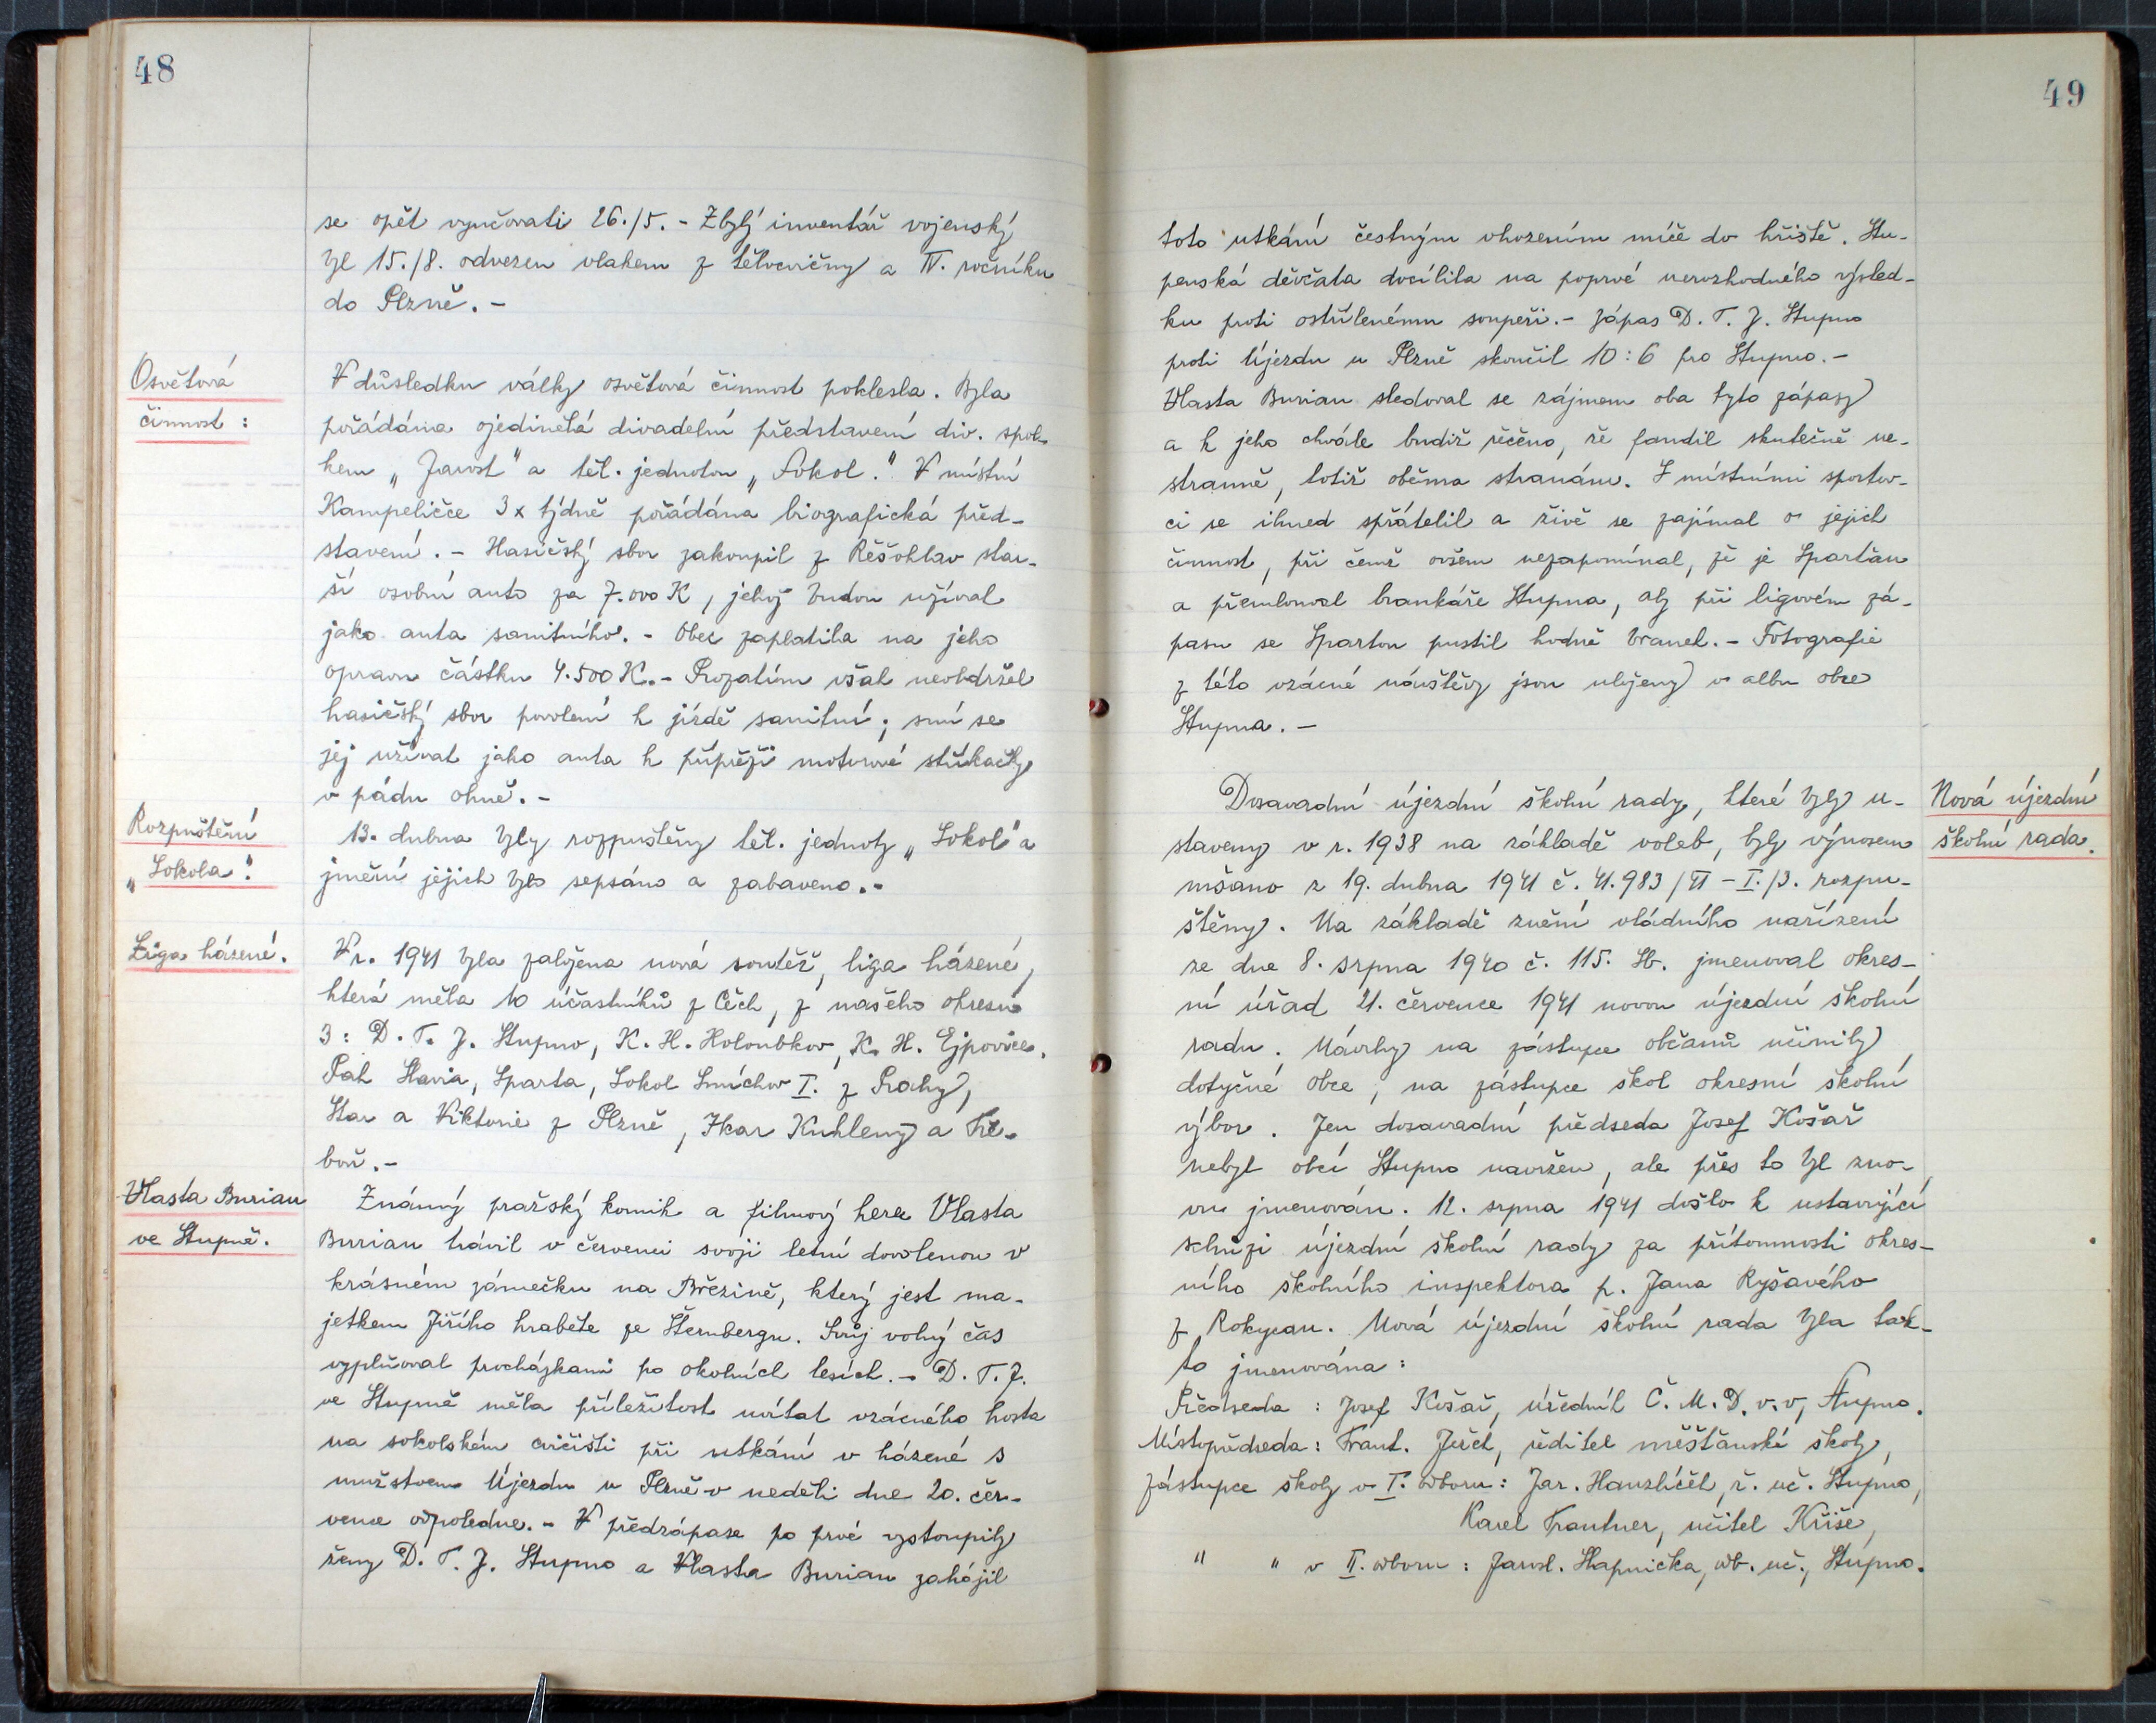 48
se opět vyučovati 26./5. - Zbylý inventář vojenský
byl 15./8. odvezen vlakem z tělocvičny a IV. ročníku
do Plzně. -
Osvětová
činnost :
V důsledku války osvětová činnost poklesla. Byla
pořádána ojedinělá divadelní představení div. spol-
kem „Jarost" a těl. jednotou „Sokol." V místní
Kampeličce 3x týdně pořádána biografická před-
stavení. - Hasičský sbor zakoupil z Řešohlav star-
ší osobní auto za 7.000 K, jehož budou užíval
jako auta sanitního. - Obec zaplatila na jeho
opravu částku 4.500 K. - Prozatím však neobdržel
hasičský sbor povolení k jízdě sanitní; smí se
jej užívat jako auta k přípřeži motorové stříkačky
v pádu ohně. -
Rozpuštění
„Sokola".
13. dubna byly rozpuštěny těl. jednoty „Sokol" a
jmění jejich bylo sepsáno a zabaveno. -
Liga házené.
V r. 1941 byla založena nová soutěž, liga házené,
která měla 10 účastníků z Čech, z našeho okresu
3: D. T. J. Stupno, K. H. Holoubkov, K. H. Ejpovice.
Pak Slavia, Sparta, Sokol Smíchov I. z Prahy,
Star a Viktorie z Plzně, Ikar Kuhleny a Tře-
boň. -
Vlasta Burian
ve Stupně.
Známý pražský komik a filmový herec Vlasta
Burian trávil v červenci svoji letní dovolenou v
krásném zámečku na Březině, který jest ma-
jetkem Jiřího hraběte ze Šternbergu. Svůj volný čas
vyplňoval procházkami po okolních lesích. - D. T. J.
ve Stupně měla příležitost uvítat vzácného hosta
na sokolském cvičišti při utkání v házené s
mužstvem Újezdu u Plzně v neděli dne 20. čer-
vence odpoledne. - V předzápase po prvé vystoupily
ženy D. T. J. Stupno a Vlasta Burian zahájil
49
toto utkání čestným vhozením míče do hřiště. Stu-
penská děvčata docílila na poprvé nerozhodného výsled-
ku proti ostřílenému soupeři. - Zápas D. T. J. Stupno
proti Újezdu u Plzně skončil 10 : 6 pro Stupno. -
Vlasta Burian sledoval se zájmem oba tyto zápasy
a k jeho chvále budiž řečeno, že fandil skutečně ne-
stranně, totiž oběma stranám. S místními sportov-
ci se ihned spřátelil a živě se zajímal o jejich
činnost, při čemž ovšem nezapomínal, že je Spartan
a přemlouval brankáře Stupna, aby při ligovém zá-
pasu se Spartou pustil hodně branek. - Fotografie
z této vzácné návštěvy jsou uloženy v albu obce
Stupna. -
Nová újezdní
školní rada.
Dosavadní újezdní školní rady, které byly u-
staveny v r. 1938 na základě voleb, byly výnosem
mšano z 19. dubna 1941 č. 41.983/41 - I./3. rozpu-
štěny. Na základě znění vládního nařízení
ze dne 8. srpna 1940 č. 115. Sb. jmenoval okres-
ní úřad 21. července 1941 novou újezdní školní
radu. Návrhy na zástupce občanů učinily
dotyčné obce, na zástupce škol okresní školní
výbor. Jen dosavadní předseda Josef Košař
nebyl obcí Stupno navržen, ale přes to byl zno-
vu jmenován. 12. srpna 1941 došlo k ustavující
schůzi újezdní školní rady za přítomnosti okres-
ního školního inspektora p. Jana Ryšavého
z Rokycan. Nová újezdní školní rada byla tak-
to jmenována :
Předseda : Josef Košař, úředník Č. M. D. v. v., Stupno.
Místopředseda : Frant. Jerch, ředitel měšťanské školy,
zástupce školy v I. odboru : Jar. Hanzlíček, ř. uč. Stupno,
Karel Trantner, učitel Kříše,
" " v II. odboru : Jarosl. Slapnička, odb. uč., Stupno.